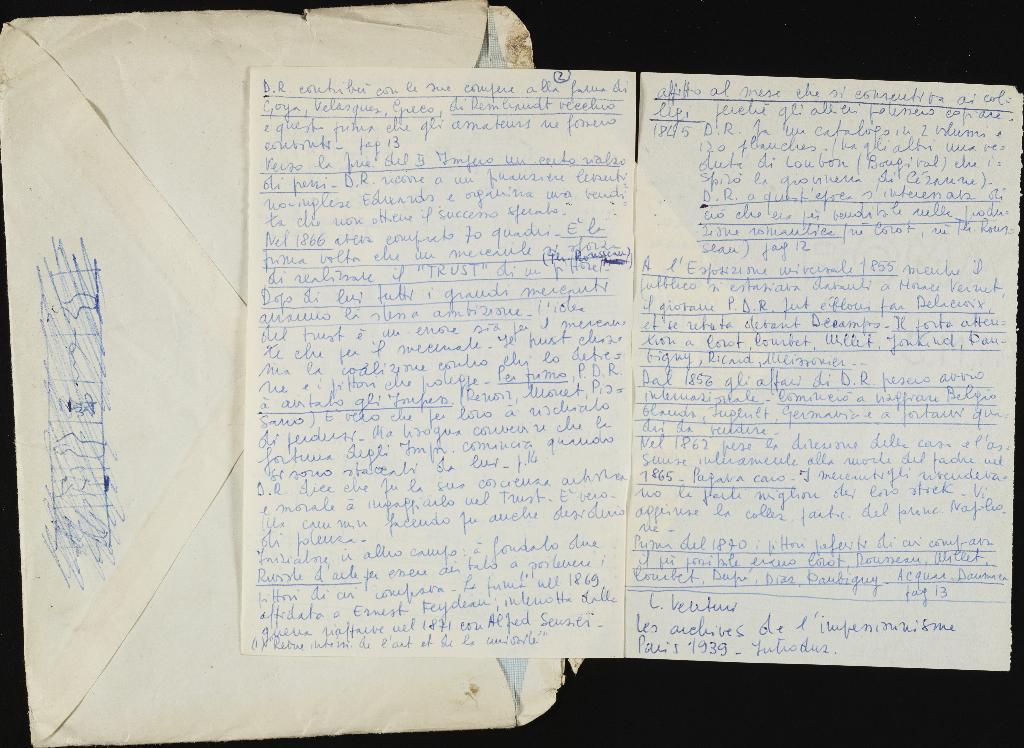 2
D.R. contribuì con le sue compere alla fama di
Goya, Velasquez, Greco, di Rembrandt vecchio
e questo prima che gli amateurs ne fossero
convinti. pag 13
Verso la fine del II Impero un certo rialzo
di prezzi. D.R. ricorre a un finanziere levanti
no-inglese Edwards e organizza una vendi-
ta che non ottiene il successo sperato.
Nel 1866 aveva comprato 70 quadri. È la
prima volta che un mercante si sforza
di realizzare il "TRUST" di un pittore (Th. Rousseau)
Dopo di lui tutti i grandi mercanti
avranno la stessa ambizione. L'idea
del trust è un errore sia per il mercan-
te che per il mecenate. Il trust
ma la coalizione contro chi lo detie-
ne e i pittori che protegge. Per primo, P.D.R.
à aiutato gli Impres. (Renoir, Monet, Pis-
sarro) È vero che per loro à rischiato
di perdersi. Ma bisogna convenire che la
fortuna degli Impr. comincia quando
si sono staccati da lui. p. 14.
D.R. dice che fu la sua coscienza artistica
e morale a impegnarlo nel Trust. È vero.
Ma facendo fu anche desiderio
di potenza.
Iniziatore in altro campo: à fondato due
Riviste d'arte per essere aiutato a sostenere i
pittori di cui comprava. La prima(1) nel 1869
affidata a Ernest Feydeau, interrotta dalla
guerra riappare nel 1871 con Alfred Sensier.
(1) "Revue intern. de l'art et de la curiosité"
affitto al mese che si consentiva ai col-
leg. perché gli allievi potessero copiare.
1845 D.R. fa un catalogo in 2 volumi e
120 planches. (tra gli altri una ve-
duta di Loubon (Bougival) che i-
spirò la giovinezza di Cézanne).
D.R. a quest'epoca s'interessava di
ciò che era più vendibile nella produ-
zione romantica (in Corot, in Th. Rous-
seau) pag 12
A l'Esposizione universale 1855 mentre il
pubblico si estasiava davanti a Horace Vernet,
il giovane P.D.R. fut ébloui par Delacroix
et se retuta devant Decamps. Il porta atten-
tion a Corot, Courbet, Millet, Jonkind, Dau-
bigny, Ricard, Meissonier.
Dal 1856 gli affari di D.R. presero avvio
internazionale. Cominciò a viaggiare Belgio
Olanda, Inghilt Germania e a portarvi qua-
dri da vendere.
Nel 1862 prese la direzione della casa e l'as-
sunse interamente alla morte del padre nel
1865. Pagava caro. I mercanti gli rivendeva-
no la parte miglior dei loro stock. Vi
aggiunse la collez. partic. del princ. Napoleo-
ne.
Prima del 1870 i pittori preferiti di cui comprava
il più possibile erano Corot, Rousseau, Millet,
Courbet, Dupré, Diaz Daubigny. Acquar. Daumier
pag 13
L. Venturi
Les archives de l'impressionnisme
Paris 1939 - Introduz.